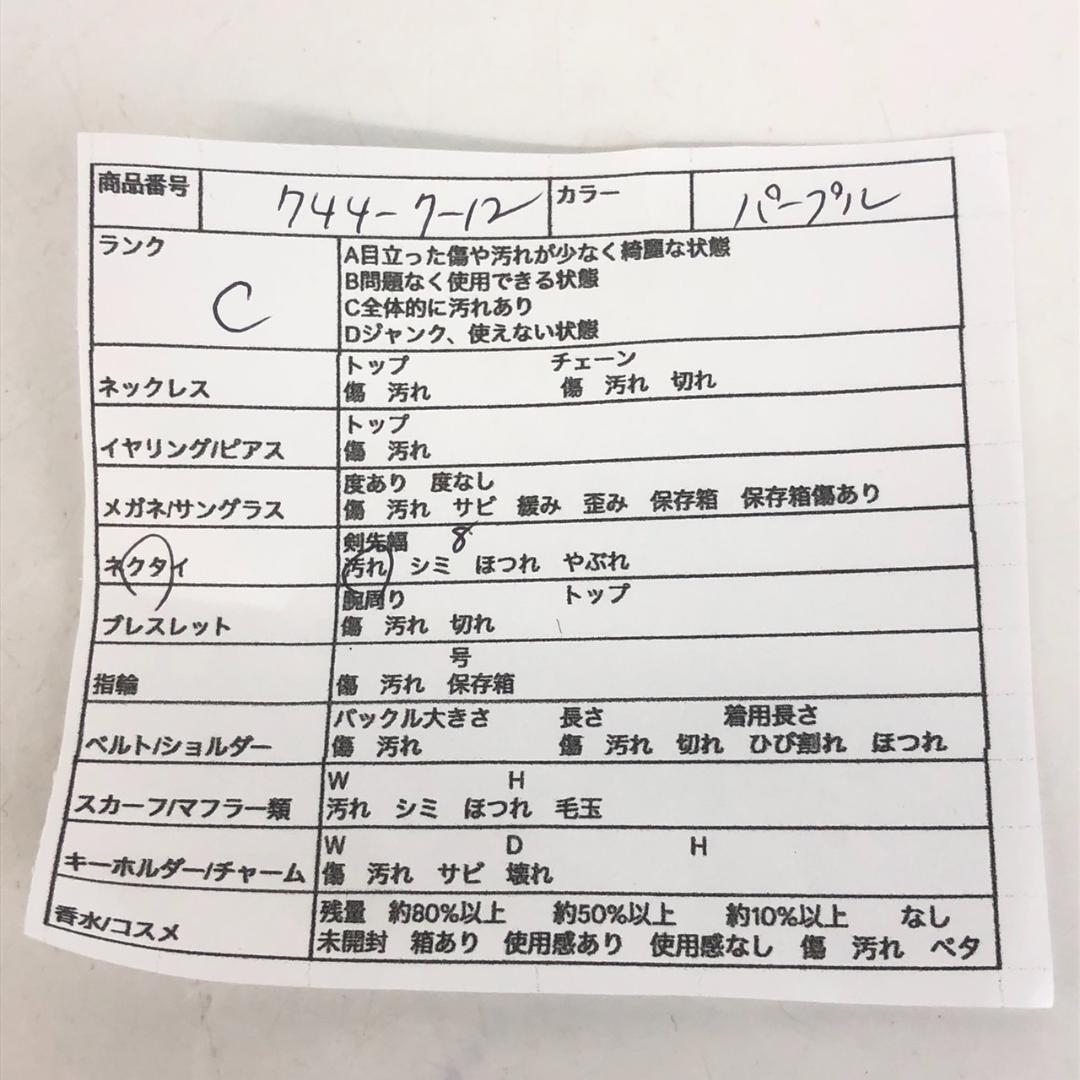 商品番号 744-7-12 カラー パープル
ランク C
A目立った傷や汚れが少なく綺麗な状態
B問題なく使用できる状態
C全体的に汚れあり
Dジャンク、使えない状態
ネックレス
トップ チェーン
傷 汚れ 傷 汚れ 切れ
イヤリング/ピアス
トップ
傷 汚れ
メガネ/サングラス
度あり 度なし
傷 汚れ サビ 緩み 歪み 保存箱 保存箱傷あり
ネクタイ
剣先幅 8
汚れ シミ ほつれ やぶれ
ブレスレット
腕周り トップ
傷 汚れ 切れ
指輪
号
傷 汚れ 保存箱
ベルト/ショルダー
バックル大きさ 長さ 着用長さ
傷 汚れ 傷 汚れ 切れ ひび割れ ほつれ
スカーフ/マフラー類
W H
汚れ シミ ほつれ 毛玉
キーホルダー/チャーム
W D H
傷 汚れ サビ 壊れ
香水/コスメ
残量 約80%以上 約50%以上 約10%以上 なし
未開封 箱あり 使用感あり 使用感なし 傷 汚れ ベタ